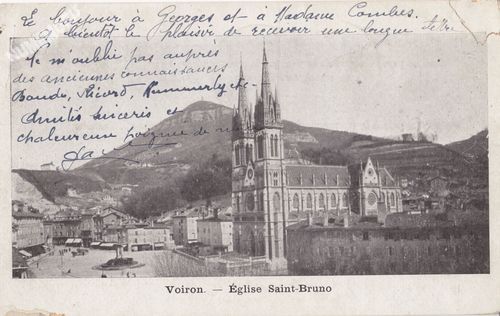 Le bonjour à Georges et à Madame Combes.
A bientôt le plaisir de recevoir une longue lettre
Je m'oublie pas auprès
des anciennes connaissances
Baude, Ricord,
Amitiés sincères et
chaleureuse poignée de
Voiron. — Église Saint-Bruno